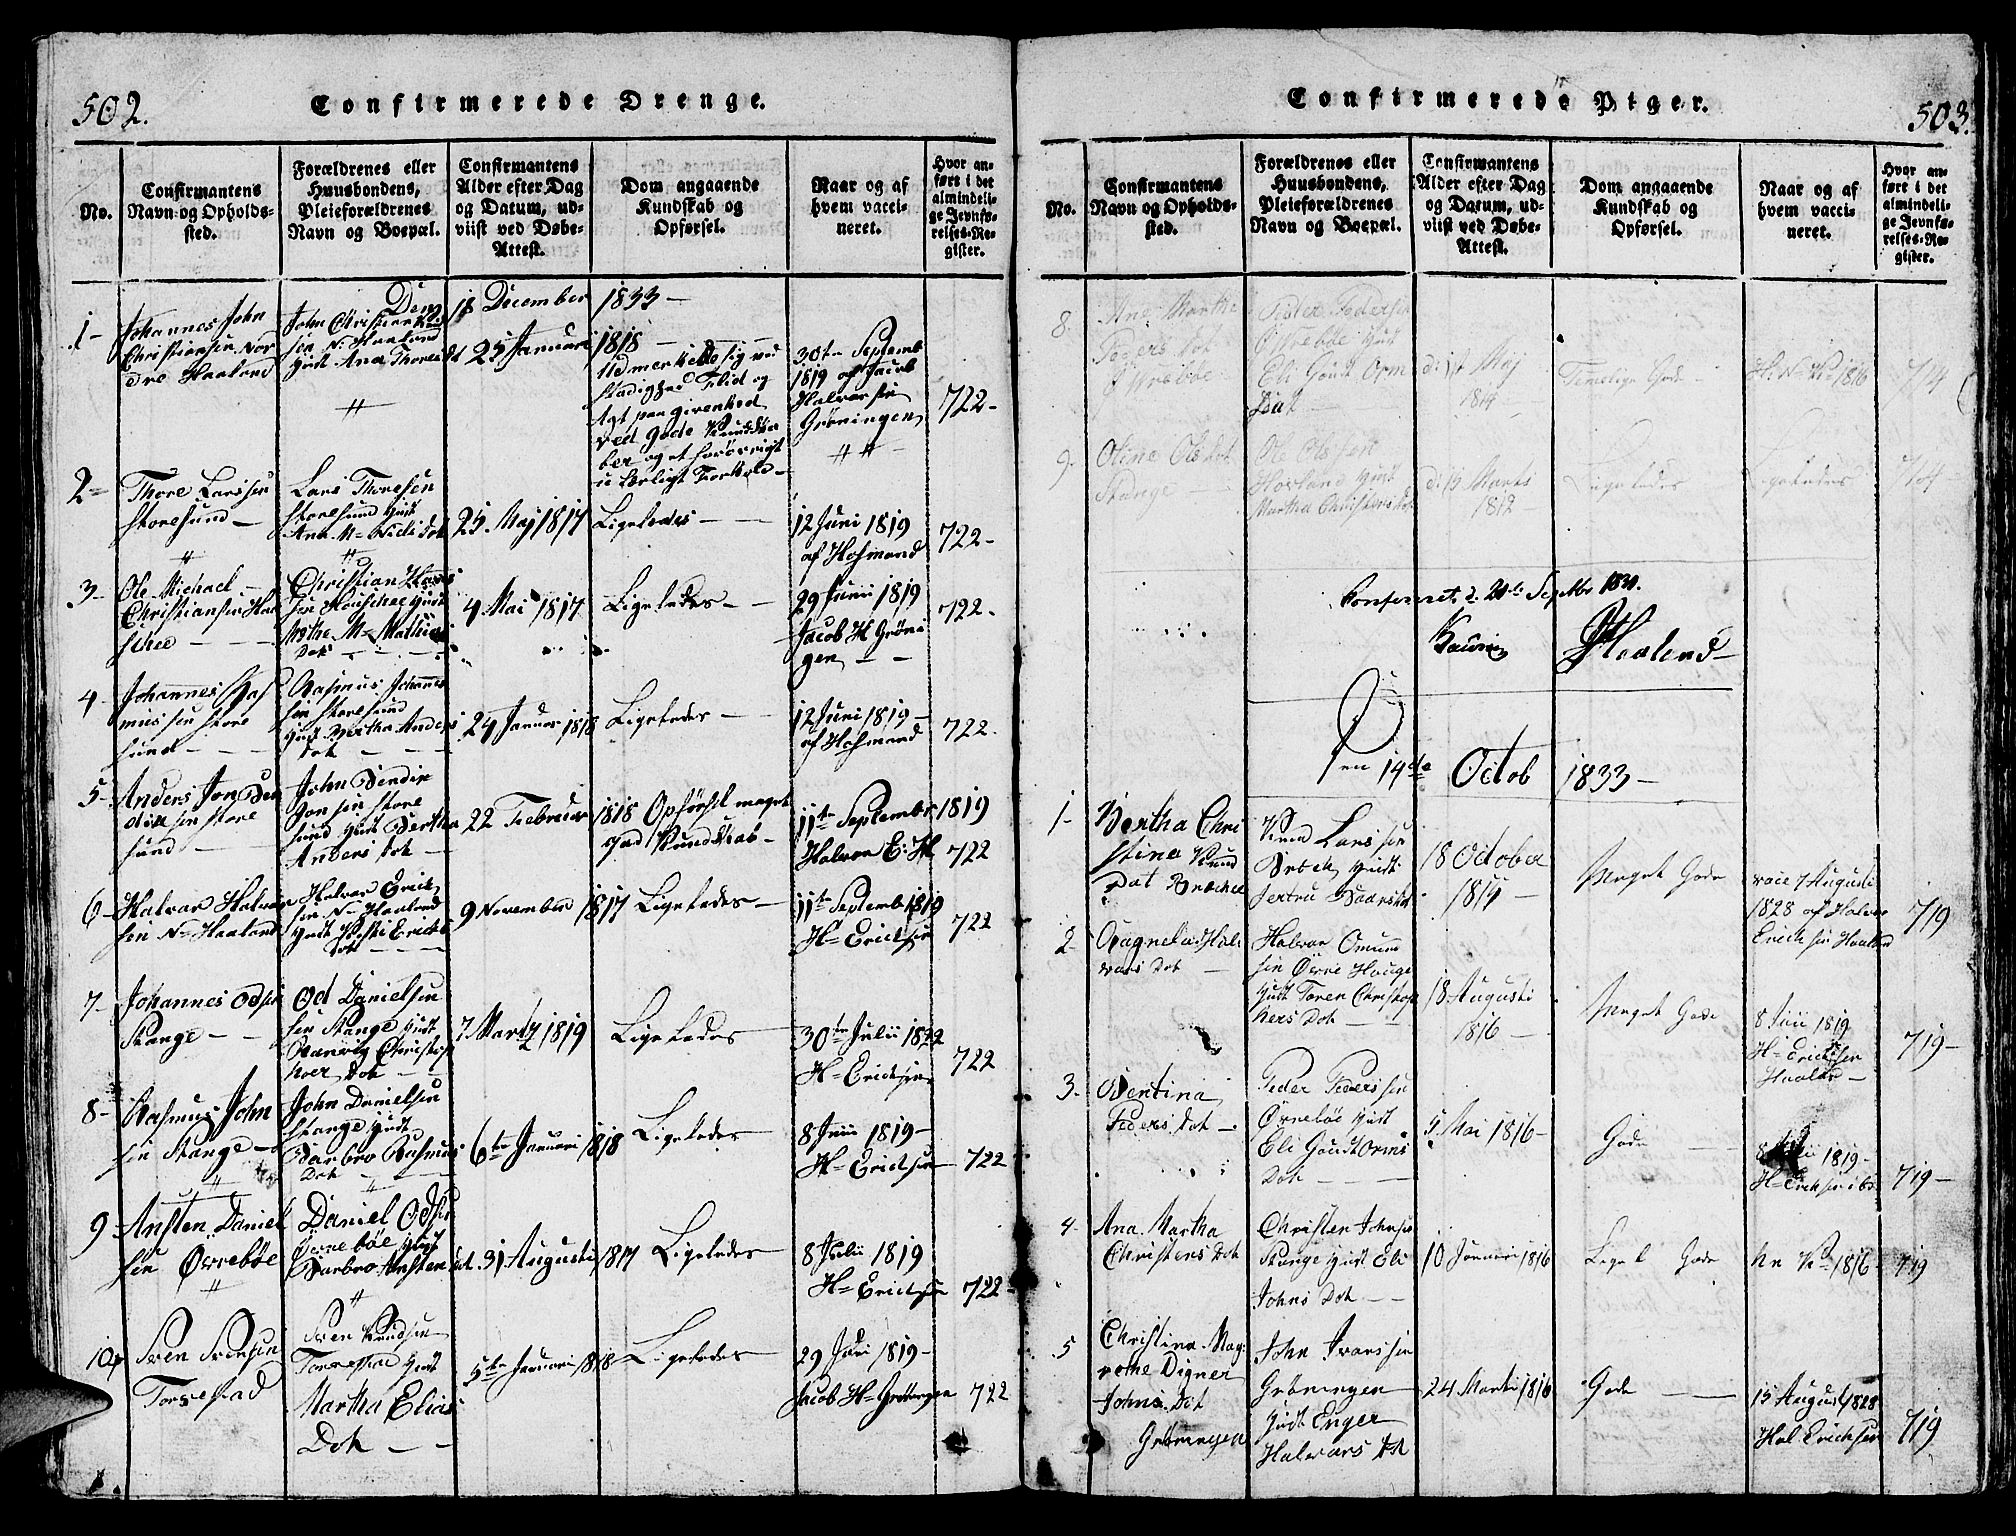 502.
Confirmerede Drenge.
No.
Confirmantens
Navn og Opholds-
sted.
Forældrenes eller
Huusbondens,
Pleieforældrenes
Navn og Boepæl.
Confirmantens
Alder efter Dag
og Datum, ud-
viist ved Døbe-
Attest.
Dom angaaende
Kundskab og
Opførsel.
Naar og af
hvem vacci-
neret.
Hvor an-
ført i det
almindeli-
ge Jevnfø-
relses-Re-
gister.
Den 18 December 1833 —
1-
Johannes John
Christiansen Nor
dre Haaland
John Christian
sen N. Haaland
Hust Ana Thores dt
25 Januari
1818 —
Udmerkede sig ved
stadighed Flid og
Agt paa givenhed
ved gode Kundska
ber og et forøvrigt
u lærligt Forhold —
30te Septemb
1819 af Jacob
Halvorsen
Grøningen
722-
2=
Thore Larssen
Storesund —
Lars Thoresen
Storesund Hust
Ana M=
25 Maj 1817
Ligeledes —
12 Juni 1819
af Hofmand
722-
3-
Ole Michael —
Christiansen Hau
schee —
Christian Hans
sen Houschee Hust
M= Mathias
Dot
4 Mai 1817
Ligeledes —
29 Junii 1819
Jacob H Grøni
gen — —
722-
4-
Johannes Ras
mussen Store
sund —
Rasmus Johannes
sen Storesund
Hust Bertha Anders
dot
24 Januar 1818
Ligeledes —
12 Juni 1819 —
af Hofmand
722.
5-
Anders Jon Ben
dixsen Store
sund —
John Bendix
Jonsen Store
sund Hust Bertha
Anders dot —
22 Februar 1818
Opførsel meget
god Kundskab —
11te Septembr 1819
Halvor E: H
722
6-
Halvor Halvor
sen N= Haaland
Halvor Erick
sen N= Haaland
Hust Ericks
dot
9 November 1817
Ligeledes —
11te Septemb 1819
H= Ericksen
722
7-
Johannes Odsen
Stange —
Od Danielsen
Stange Hust
Christof
hoer Dot —
7 Marty 1819
Ligeledes
30te Julii 1822
H= Ericksen
722
8-
Rasmus John
sen Stange —
John Danielsen
Stange Hust
Barbro Rasmus
Dot
6te Januari 1818
Ligeledes
8 Junii 1819 —
H= Ericksen
722
9
Ansten Daniel
sen Øvrebøe
Daniel Ods
Øvrebøe Hust
Barbro Anstens dt.
31 Augusti 1817
Ligeledes
8 Julii 1819
H= Ericksen
722-
10
Sven Svensen
Torvestad
Sven Knudsen
Torvestad Hust
Martha Elias
Dot — —
5te Januari 1818 —
Ligeledes
29 Juni 1819 —
Jacob H= Grøningen
722
503.
Confirmerede Piger.
No.
Confirmantens
Navn og Opholds-
sted.
Forældrenes eller
Huusbondens,
Pleieforældrenes
Navn og Boepæl.
Confirmantens
Alder efter Dag
og Datum, ud-
viist ved Døbe-
Attest.
Dom angaaende
Kundskab og
Opførsel.
Naar og af
hvem vacci-
neret.
Hvor an-
ført i det
almindeli-
ge Jevnfø-
relses-Re-
gister.
8.
Ane Martha
Peders dot
Øvrebøe
Peder Pedersen
Øvrebøe Hust
Eli Goudt Orms
Dat
d: 1st Maj
1814
Temelige Gode —
H: N= 1816
714
9.
Oline Ols dot
Stange —
Ole Olsen
Hovland Hust
Martha Christens dot
Marts
1812 —
Ligeledes
Ligeledes
714
Confirmeret d. 24de Septbr 1831.
Haaland
Den 14de Octob 1833 —
1-
Bertha Chri
stina Knud
Dat
Knud Larssen
Hust
18 October
1814 —
Meget Gode
vacc 7 Augusti
1828 af Halvor
Ericksen Haaland
719
2
Ragnela Hal
vors Dot —
Halvor Omund
sen Øvre Hauge
Hust Toren Christop
hers Dot —
18 Augusti
1816 —
Meget Gode
8 Junii 1819
H= Ericksen
Haalan —
719-
3.
Bentina
Peders dot —
Peder Pederssen
Øvrebøe Hust
Eli Goudt Orms
Dot — —
5. Mai 1816-
Gode —
8 1819-
H= Ericksen
719-
4-
Ana Martha
Christens Dot
Christen Johnsen
Stange Hust Eli
Johns Dot —
10 Januari 1816
Gode
1816 —
719
5
Christina Mag
rethe Digner
Johns Dot
Grøningen
John Ivarssen
Grøningen
Hust Enger
Halvors dt
24 Marti 1816
Gode —
15 August 1828
Hal Ericksen
719